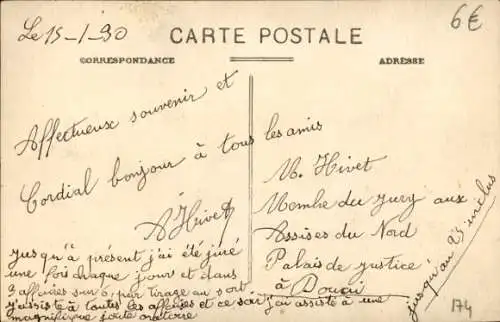 Le 15-1-30
6€
CARTE POSTALE
CORRESPONDANCE
ADRESSE
Affectueux souvenir et
Cordial bonjour à tous les amis
A Hivet
jusqu'à présent j'ai été juré
une fois chaque jour et dans
3 affaires sur 6, par tirage au sort
j'assiste à toutes les affaires et ce soir j'ai assisté à une
magnifique joute oratoire
M. Hivet
Membre du jury aux
Assises du Nord
Palais de justice
à Douai
jusqu'au 25 inclus
174